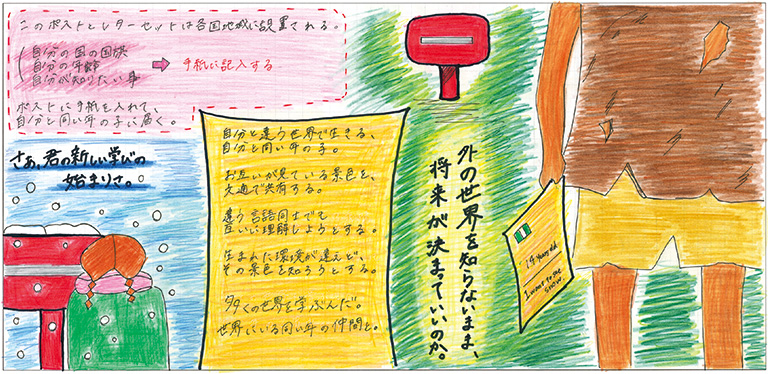 このポストとレターセットは各国地域に設置される。
自分の国の国旗
自分の年齢
自分が知りたい事
手紙に記入する
ポストに手紙を入れて、
自分と同い年の子に届く。
さぁ、君の新しい学びの
始まりさ。
自分と違う世界で生きる、
自分と同い年の子。
お互いが見ている景色を、
文通で共有する。
違う言語同士でも
互いに理解しようとする。
生まれた環境が違えど、
その景色を知ろうとする。
多くの世界を学ぶんだ。
世界にいる同い年の仲間と。
外の世界を知らないまま、
将来が決まっていいのか。
years old
I want to see
snow.